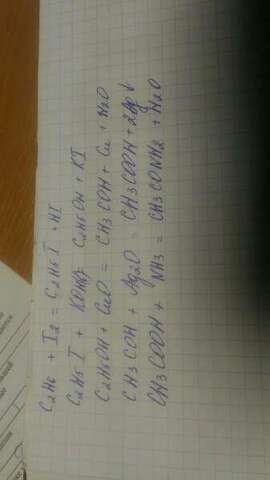 C2H6 + I2 = C2H5I + HI
C2H5I + KOH = C2H5OH + KI
C2H5OH + CuO = CH3COH + Cu + H2O
CH3COH + Ag2O = CH3COOH + 2Ag↓
CH3COOH + NH3 = CH3CONH2 + H2O